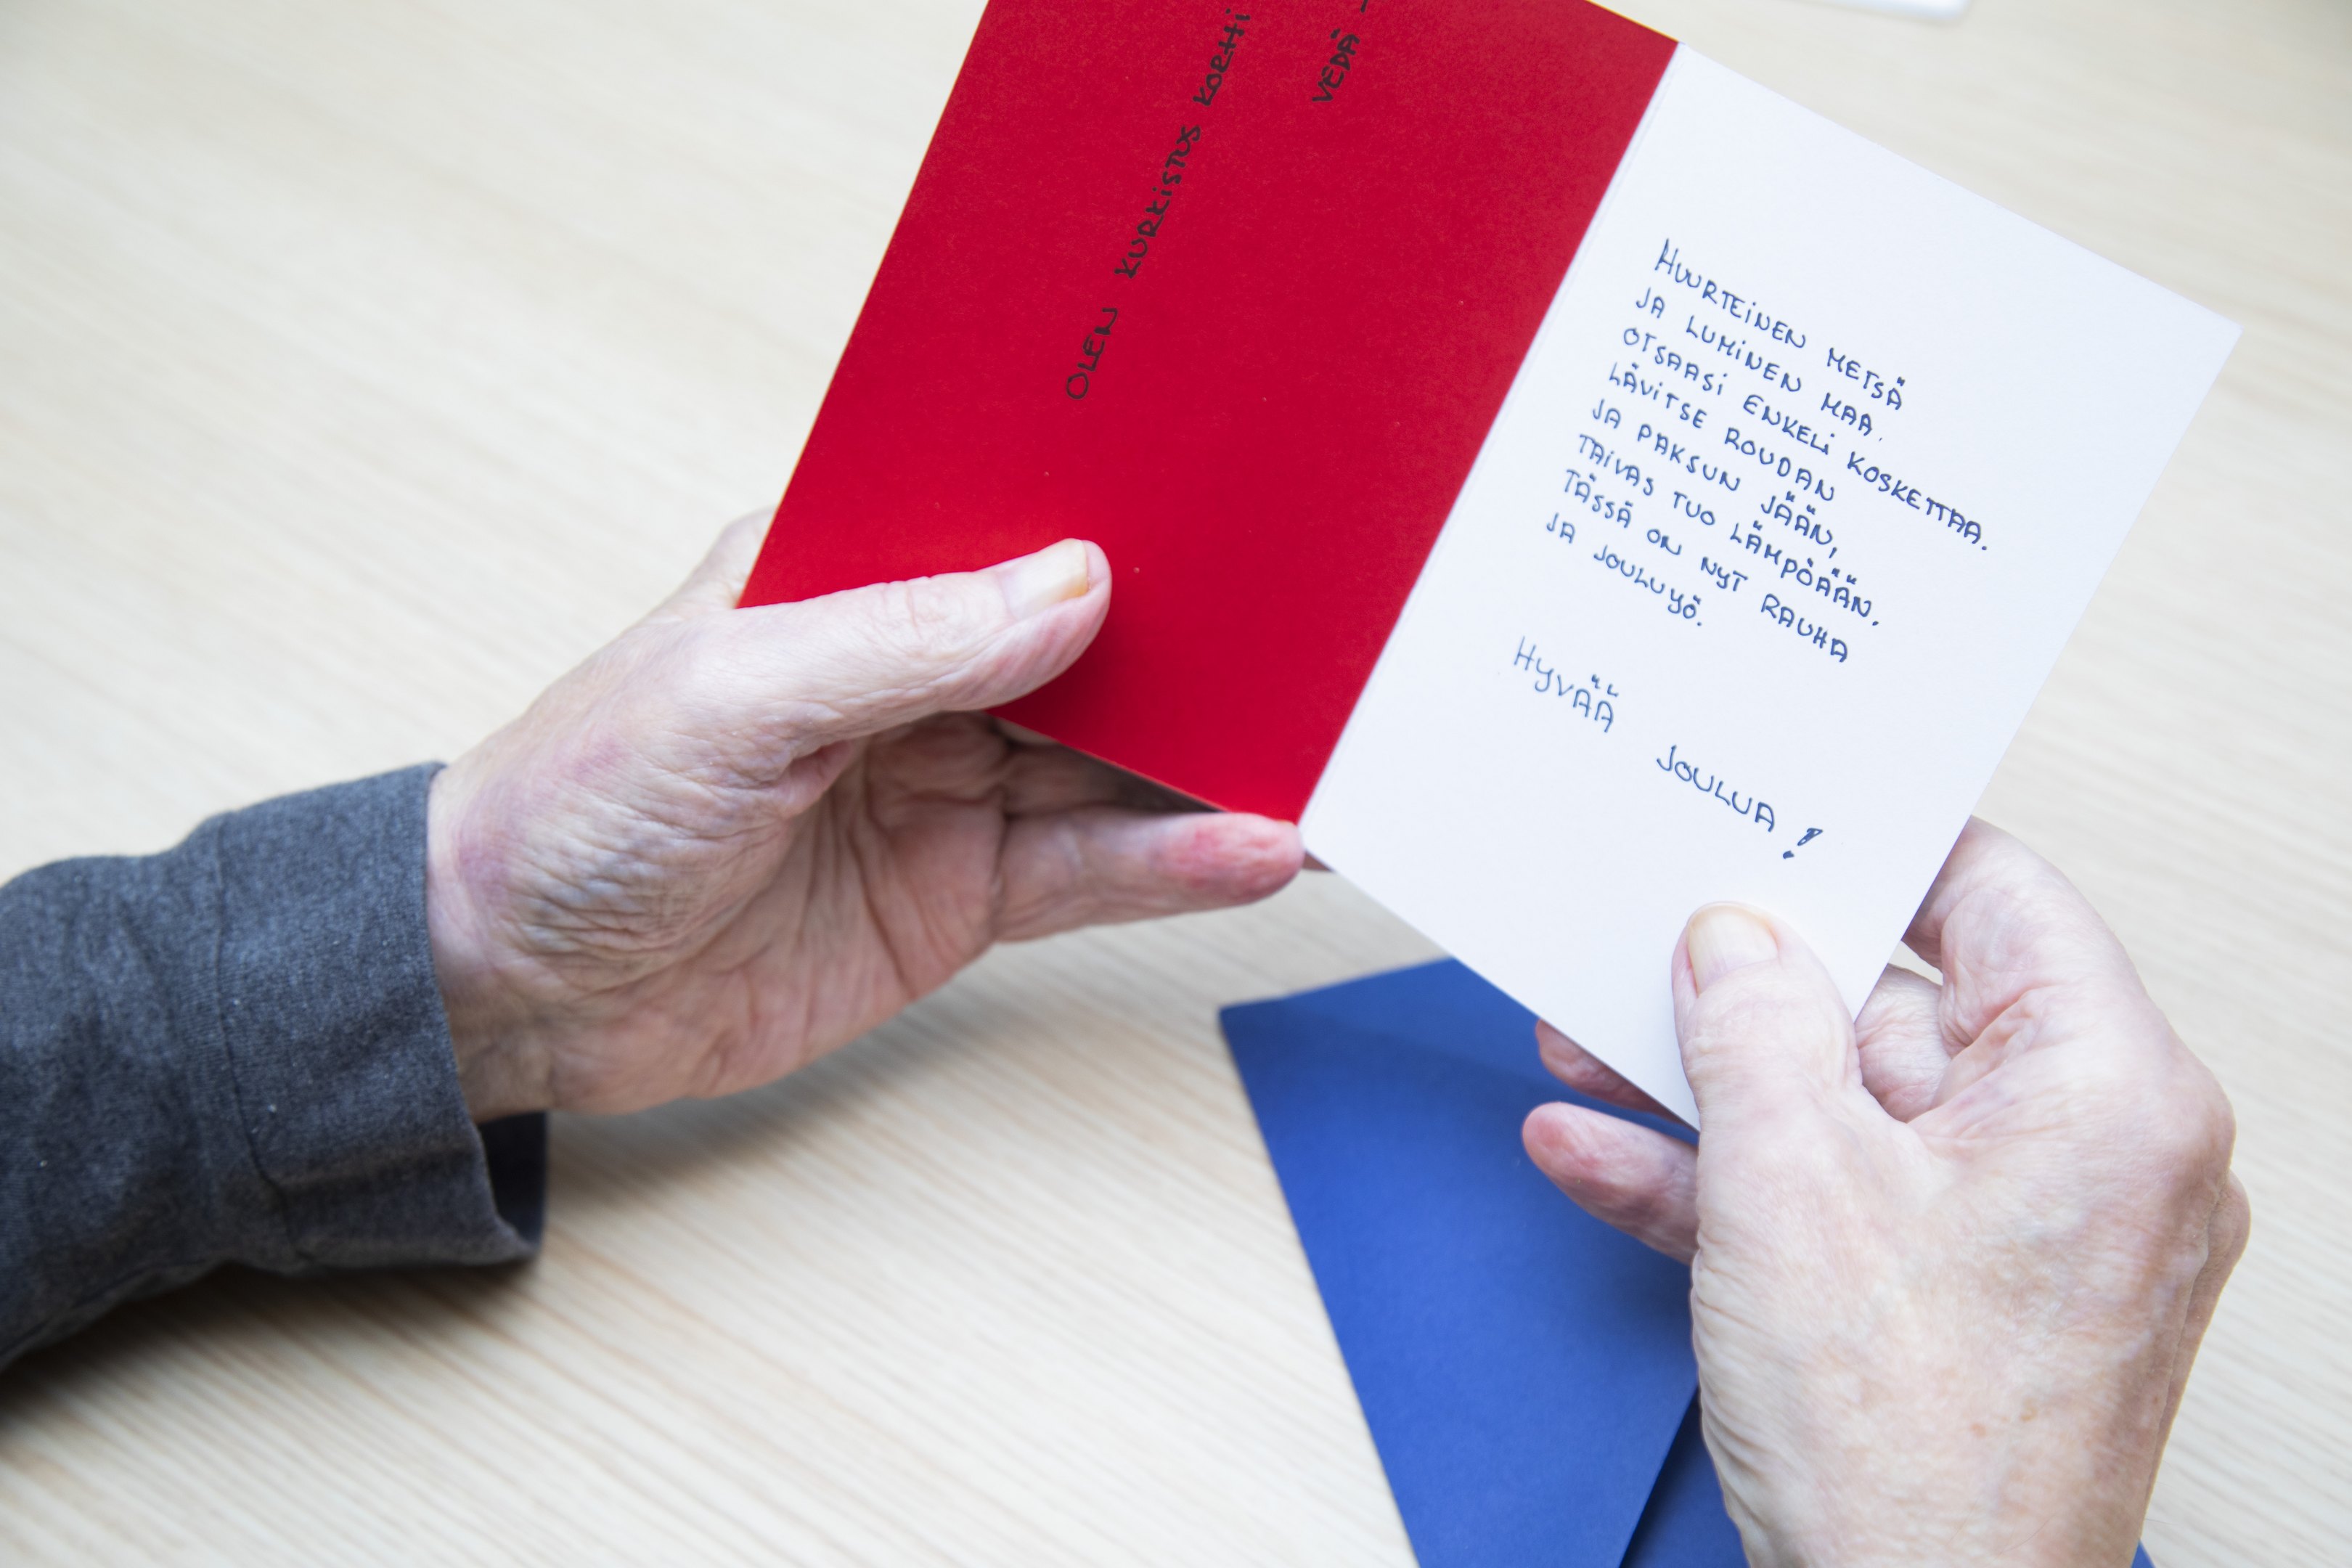 OLEN KURKISTUS KORTTI
VEDÄ
HUURTEINEN METSÄ
JA LUMINEN MAA.
OTSAASI ENKELI KOSKETTAA.
LÄVITSE ROUDAN
JA PAKSUN JÄÄN,
TAIVAS TUO LÄMPÖÄÄN.
TÄSSÄ ON NYT RAUHA
JA JOULUYÖ.
HYVÄÄ JOULUA!